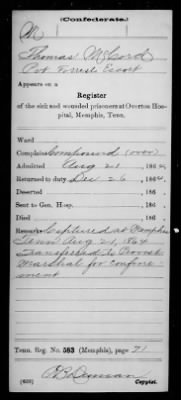 (Confederate.)
M
Thomas McCord
Pvt Forrests Escort
Appears on a
Register
of the sick and wounded prisoners at Overton Hos-
pital, Memphis, Tenn.
Ward
Complaint Compound (over)
Admitted Aug 21, 1864.
Returned to duty Dec 26, 1864.
Deserted , 186 .
Sent to Gen. Hosp. , 186 .
Died , 186 .
Remarks: Captured at Memphis
Tenn Aug 21, 1864
Transferred to Provost
Marshal for confine-
ment
Tenn. Reg. No. 583 (Memphis), page 71
Copyist.